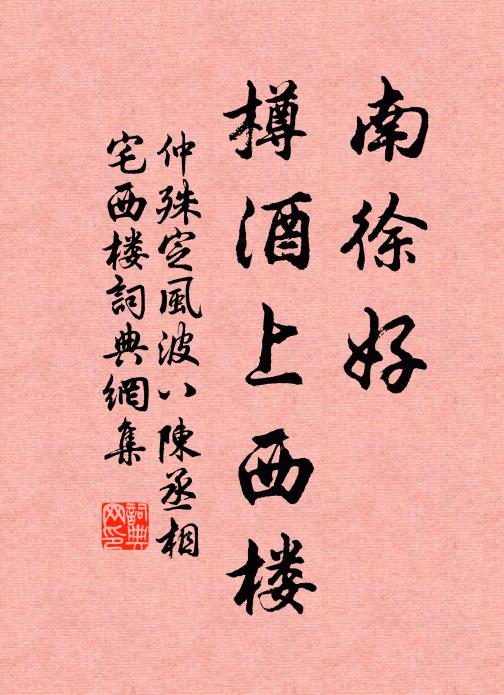 南徐好
樽酒上西楼
仲殊定風波八陳丞相
宅西楼詞典網集
詞典
网印